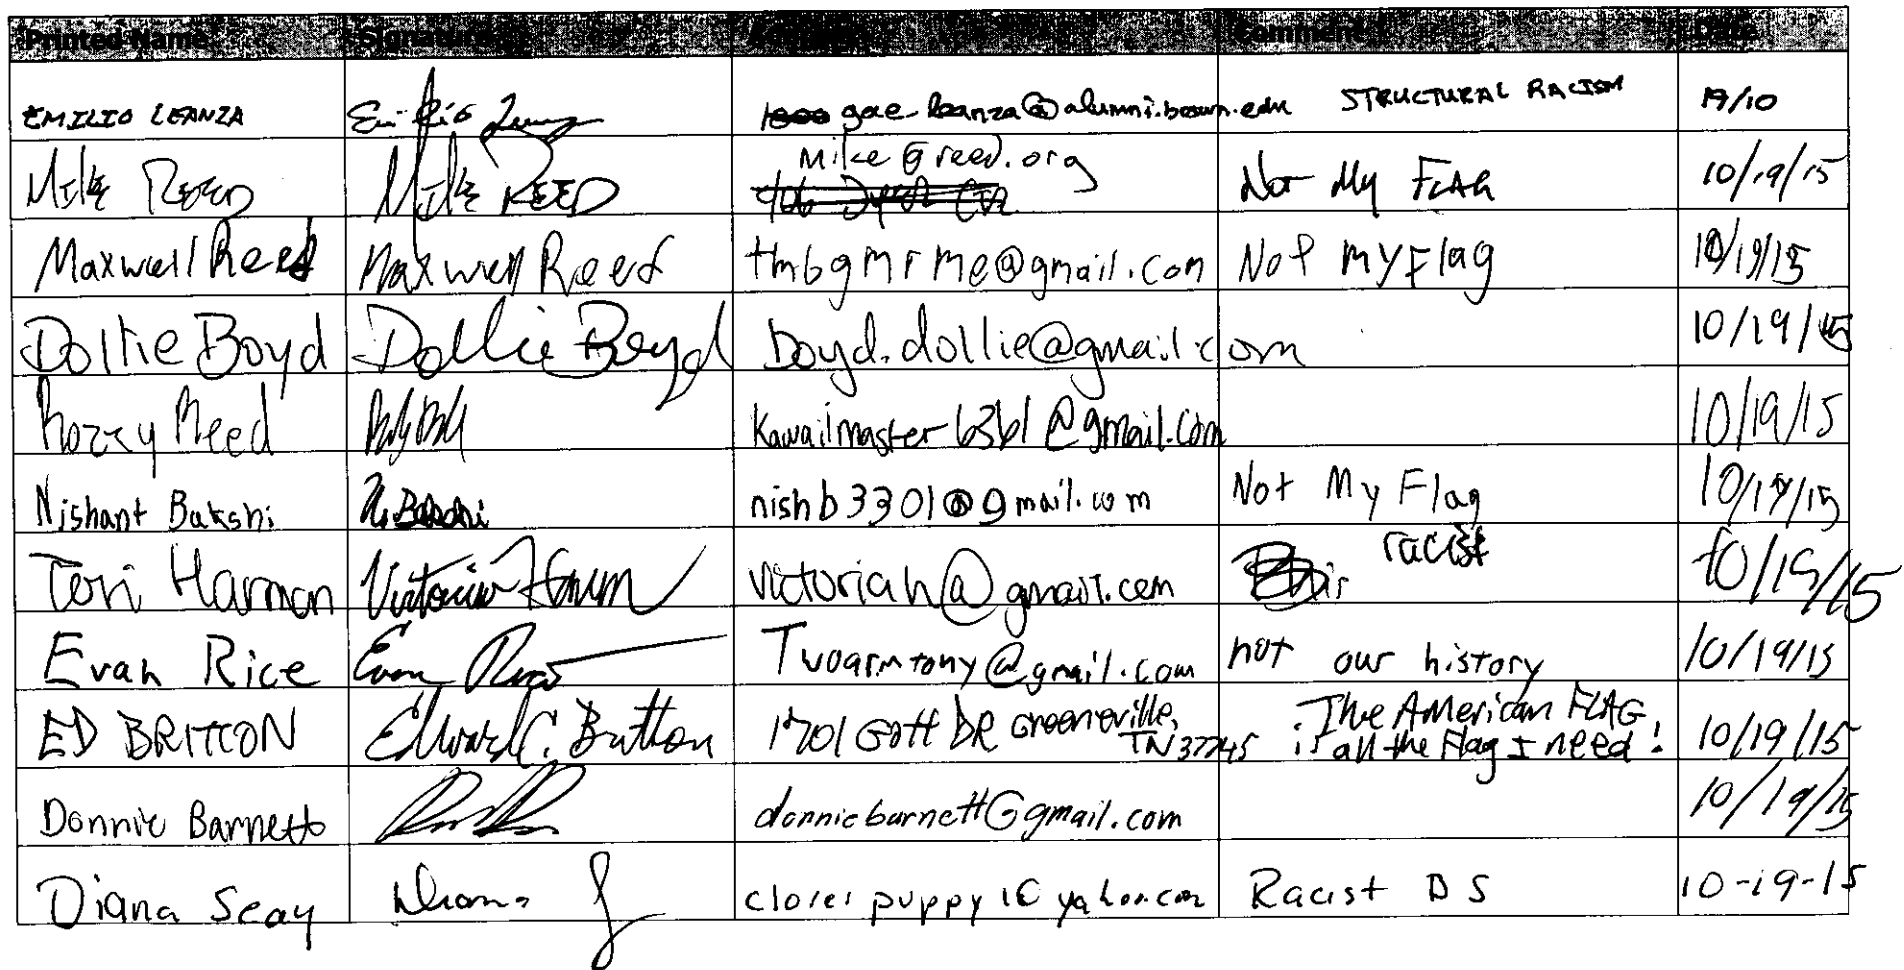 Printed Name Signature Address Comment Date
EMILIO LEANZA Emilio gae_leanza@alumni.brown.edu STRUCTURAL RACISM 19/10
mike@reed.org
Mike REED Mike REED Not My FLAG 10/19/15
Maxwell Reed Maxwell Reed tmbgmrme@gmail.com Not My Flag 10/19/15
Dollie Boyd Dollie Boyd boyd.dollie@gmail.com 10/19/15
Reed @gmail.com 10/19/15
Nishant Bakshi N. Bakshi nishb3301@gmail.com Not My Flag 10/19/15
racist
Tori Harmon Victoria victoriah@gmail.com 10/19/15
Evan Rice Evan Rice Twoarmtony@gmail.com not our history 10/19/15
ED BRITTON Edward C. Britton 1701 Gott DR Greeneville, The American FLAG
TN 37745 is all the Flag I need! 10/19/15
Donnie Barnett donniebarnett@gmail.com 10/19/15
Diana Seay Diana puppy yahoo.com Racist BS 10-19-15